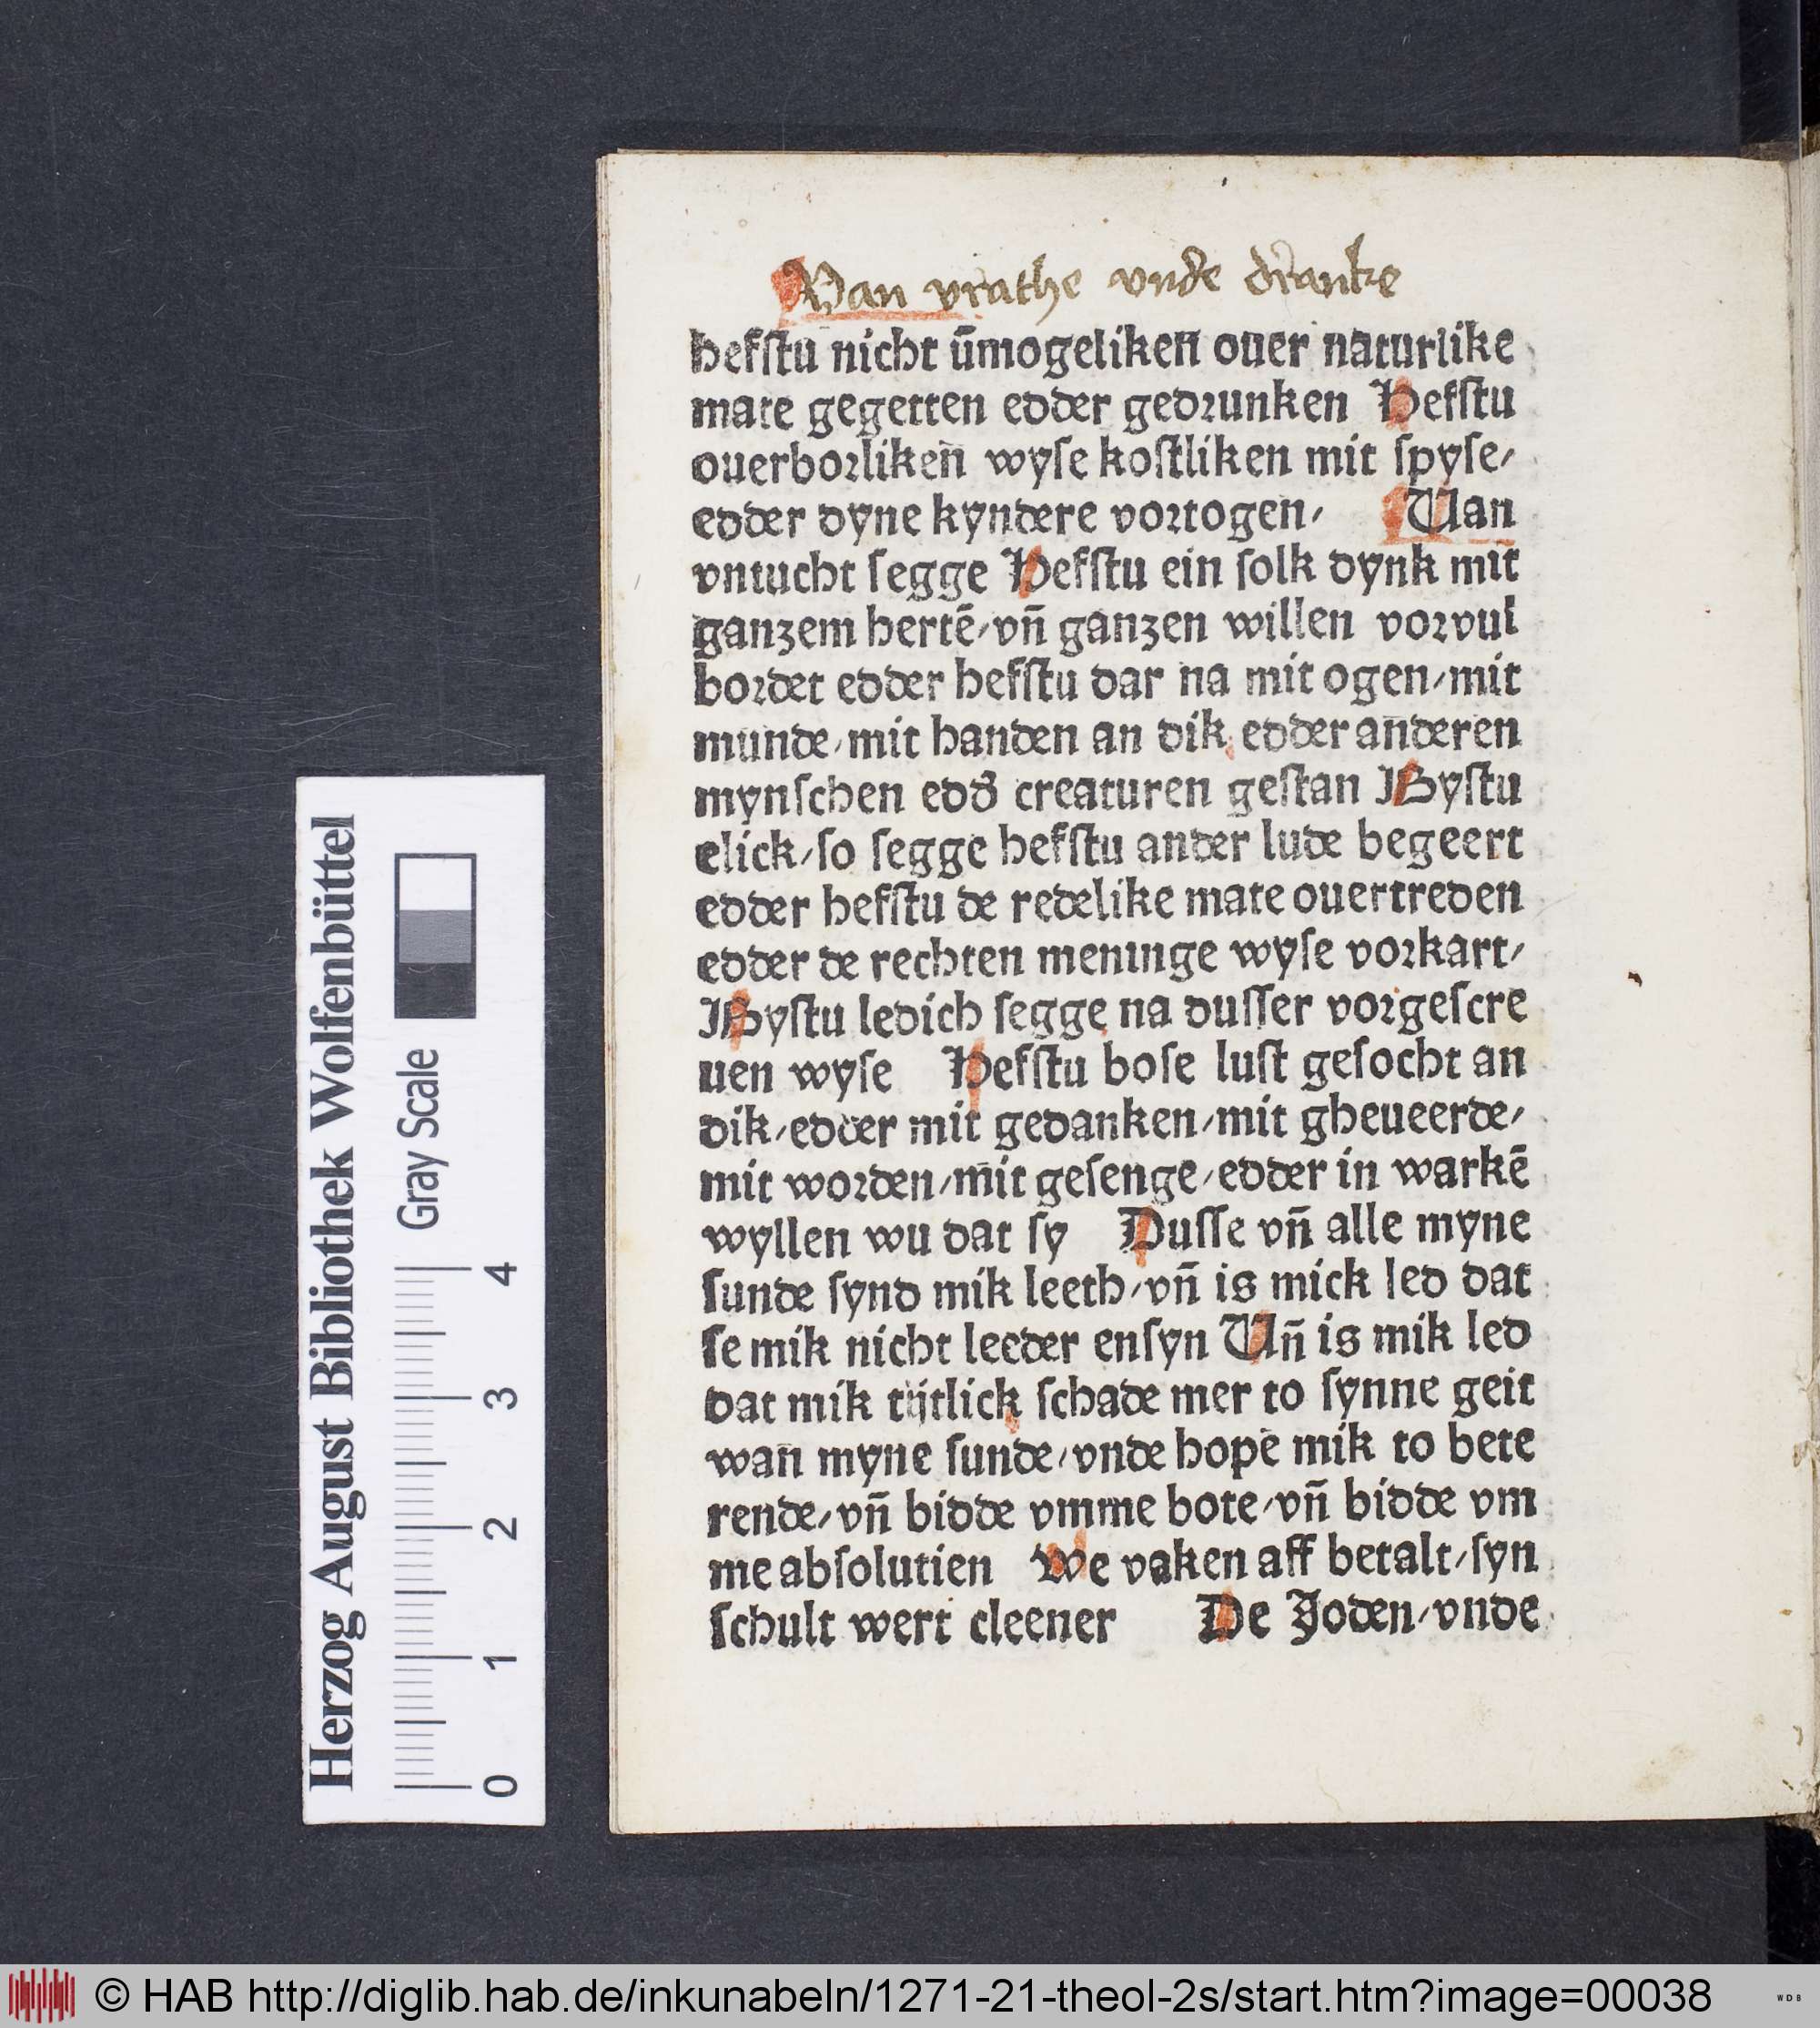 Van vrathe vnde dranke
hefstu nicht ūmogeliken ouer naturlike
mate gegetten edder gedrunken Hefstu
ouerborliken̄ wyse kostliken mit spyse/
edder dyne kyndere vortogen/ Uan
vntucht segge Hefstu ein solk dynk mit
ganzem hertē/vn̄ ganzen willen vorvul
bordet edder hefstu dar na mit ogen/mit
munde/mit handen an dik edder anderen
mynschen edď creaturen gestan Bystu
elick/so segge hefstu ander lude begeert
edder hefstu de redelike mate ouertreden
edder de rechten meninge wyse vorkart/
Bystu ledich segge na dusser vorgescre
uen wyse Hefstu bose lust gesocht an
dik/edder mit gedanken/mit gheueerde/
mit worden/mit gesenge/edder in warkē
wyllen wu dat sy Dusse vn̄ alle myne
sunde synd mik leeth/vn̄ is mick led dat
se mik nicht leeder ensyn Un̄ is mik led
dat mik tijtlick schade mer to synne geit
wan myne sunde/vnde hope mik to bete
rende/vn̄ bidde vmme bote/vn̄ bidde vm
me absolutien We vaken aff betalt/syn
schult wert cleener De Joden/vnde
Herzog August Bibliothek Wolfenbüttel
Gray Scale
0 1 2 3 4
© HAB http://diglib.hab.de/inkunabeln/1271-21-theol-2s/start.htm?image=00038
WDB